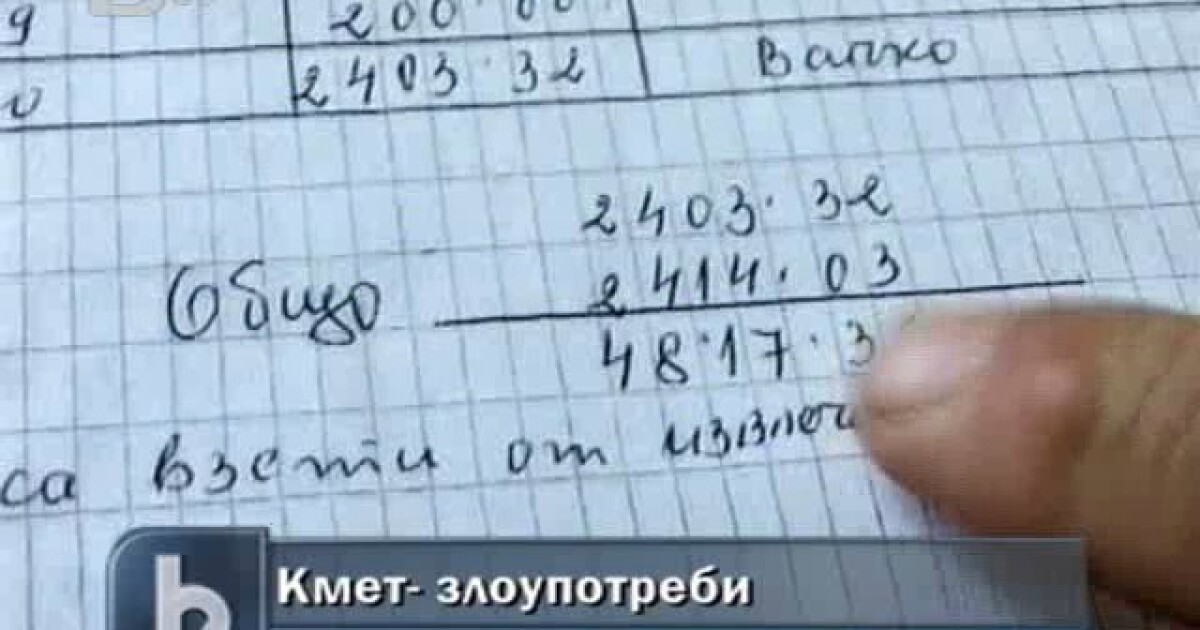 9 200.00
о 2403.32 Вапко
2403.32
Общо 2414.03
4817.3
са взети от извлеч
b Кмет- злоупотреби